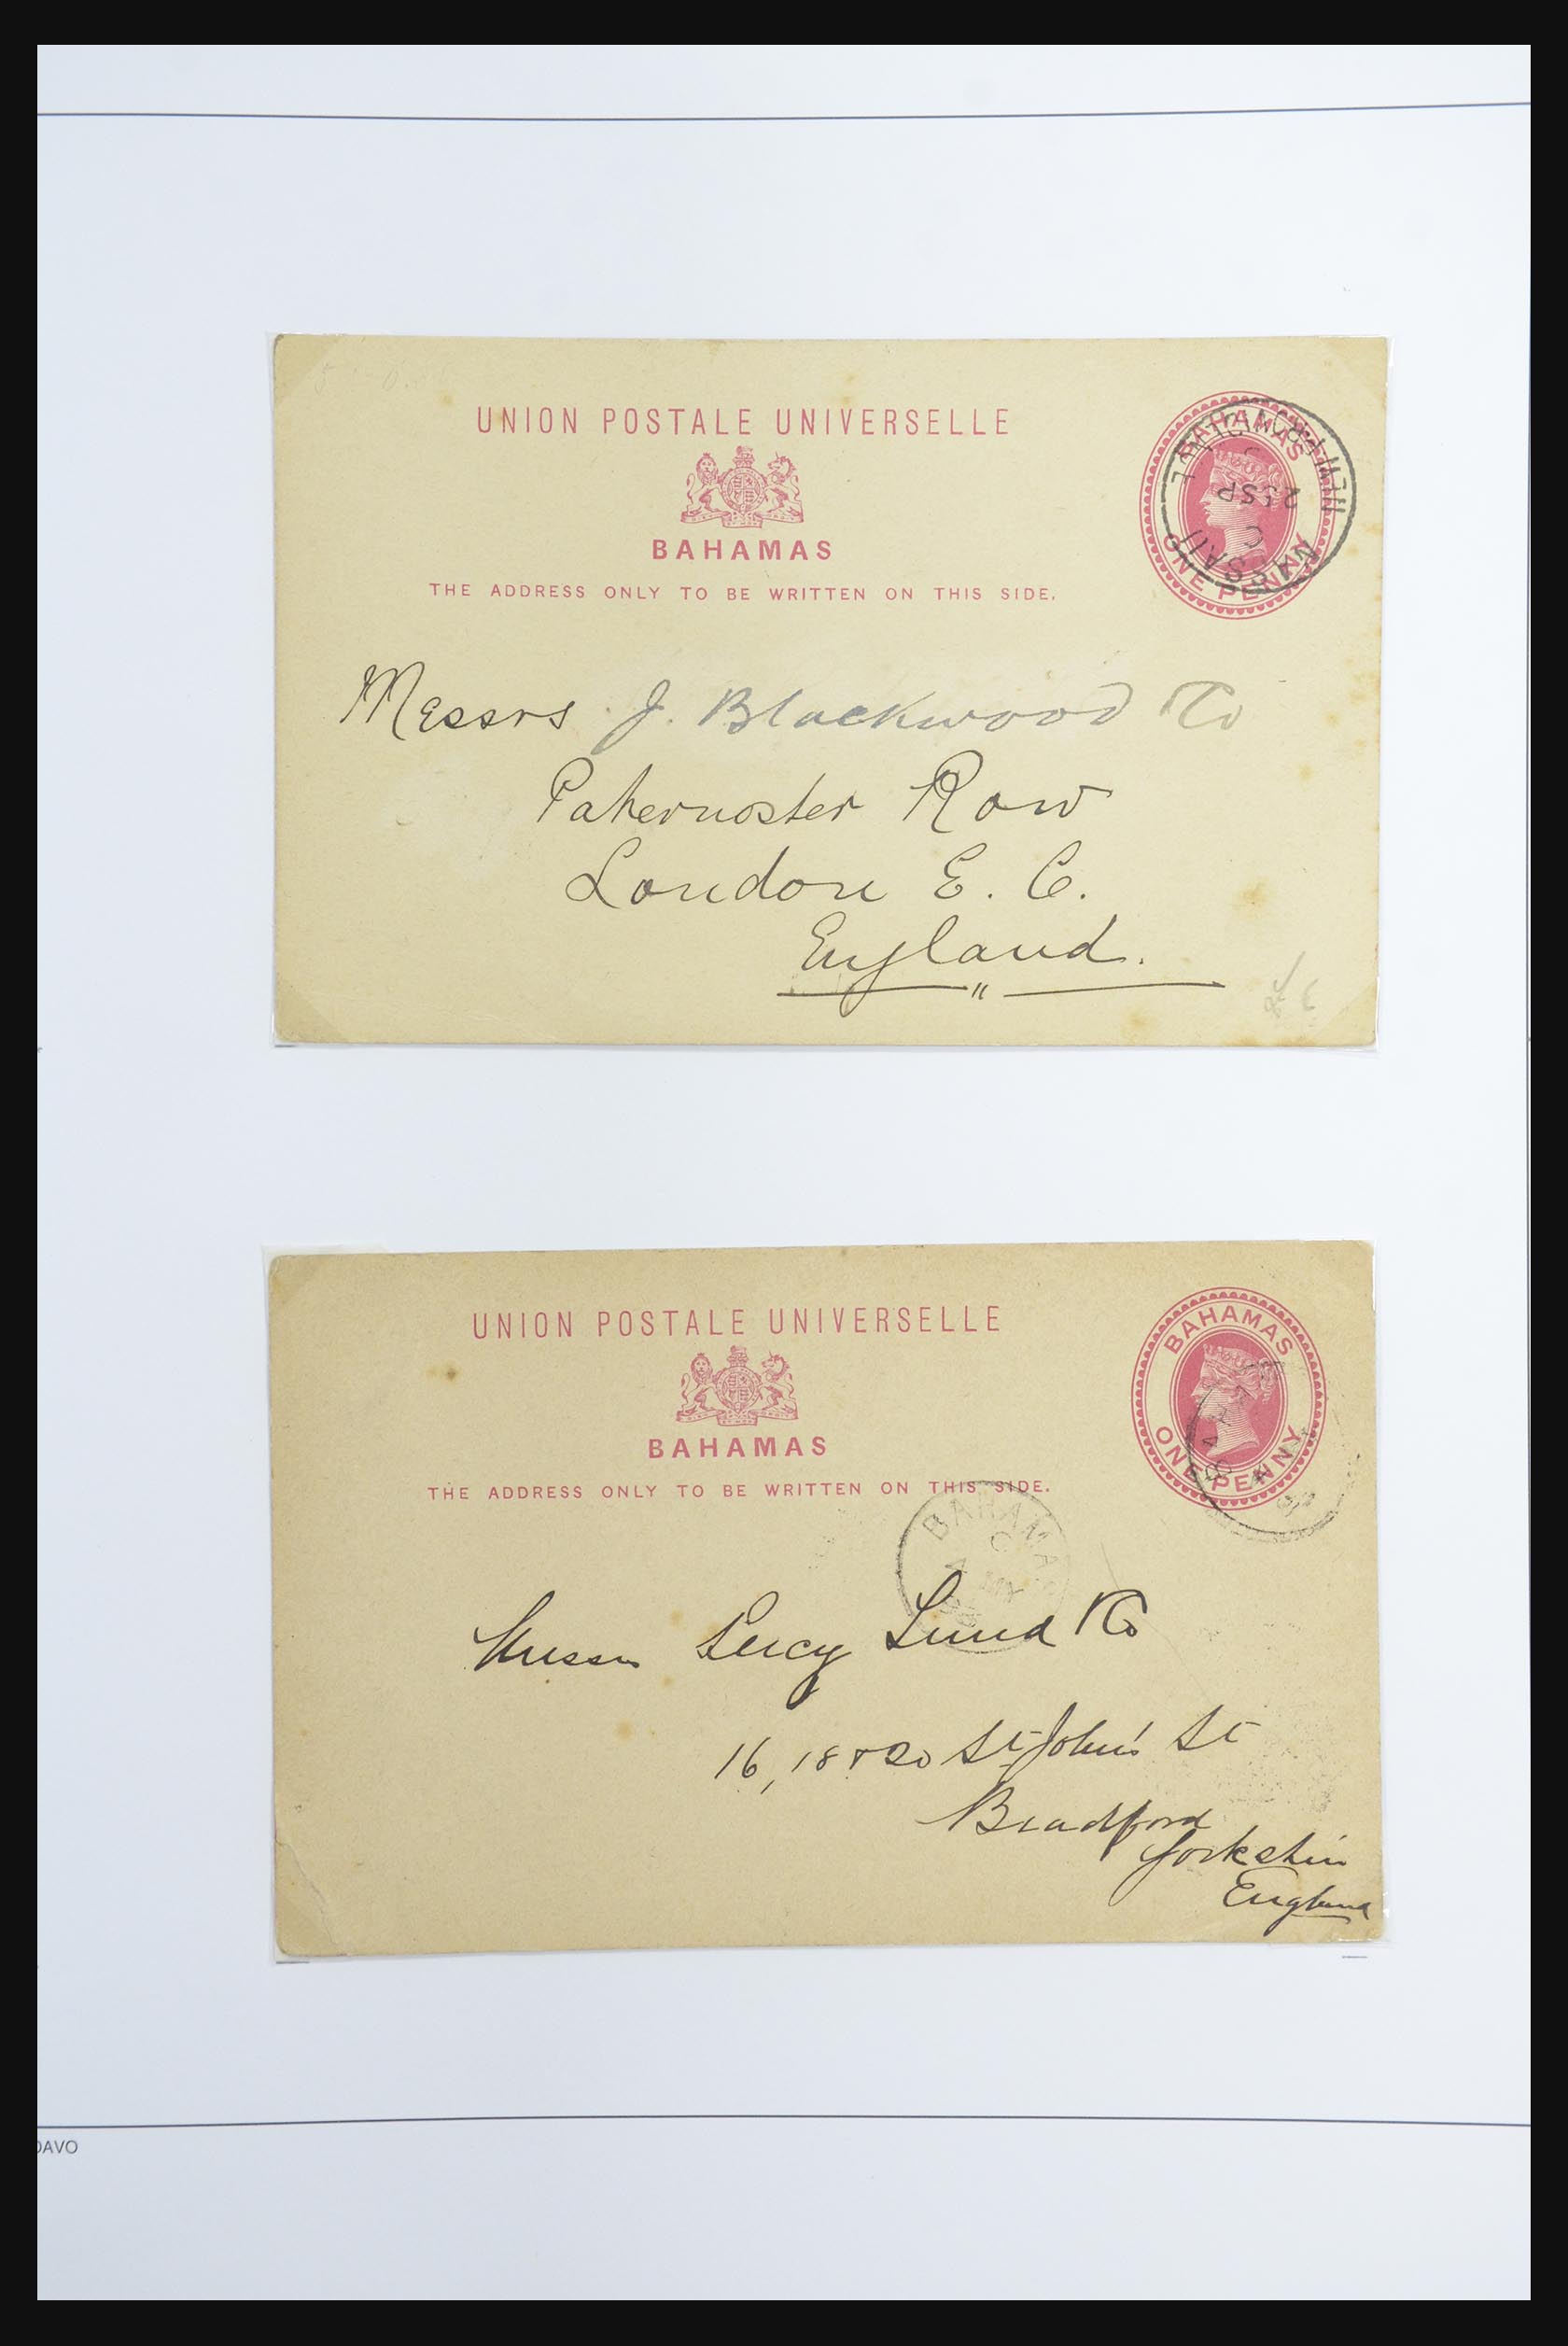 UNION POSTALE UNIVERSELLE
BAHAMAS
THE ADDRESS ONLY TO BE WRITTEN ON THIS SIDE.
BAHAMAS
ONE PENNY
NASSAU
C
25 SP
NEW PROVIDENCE
Messrs J. Blackwood & Co
Paternoster Row
London E. C.
England.
£6
UNION POSTALE UNIVERSELLE
BAHAMAS
THE ADDRESS ONLY TO BE WRITTEN ON THIS SIDE.
BAHAMAS
ONE PENNY
BAHAMAS
BAHAMAS
C
MY
Messrs Percy Lund & Co
16, 18 & 20 St John's St
Bradford
Yorkshire
England
DAVO